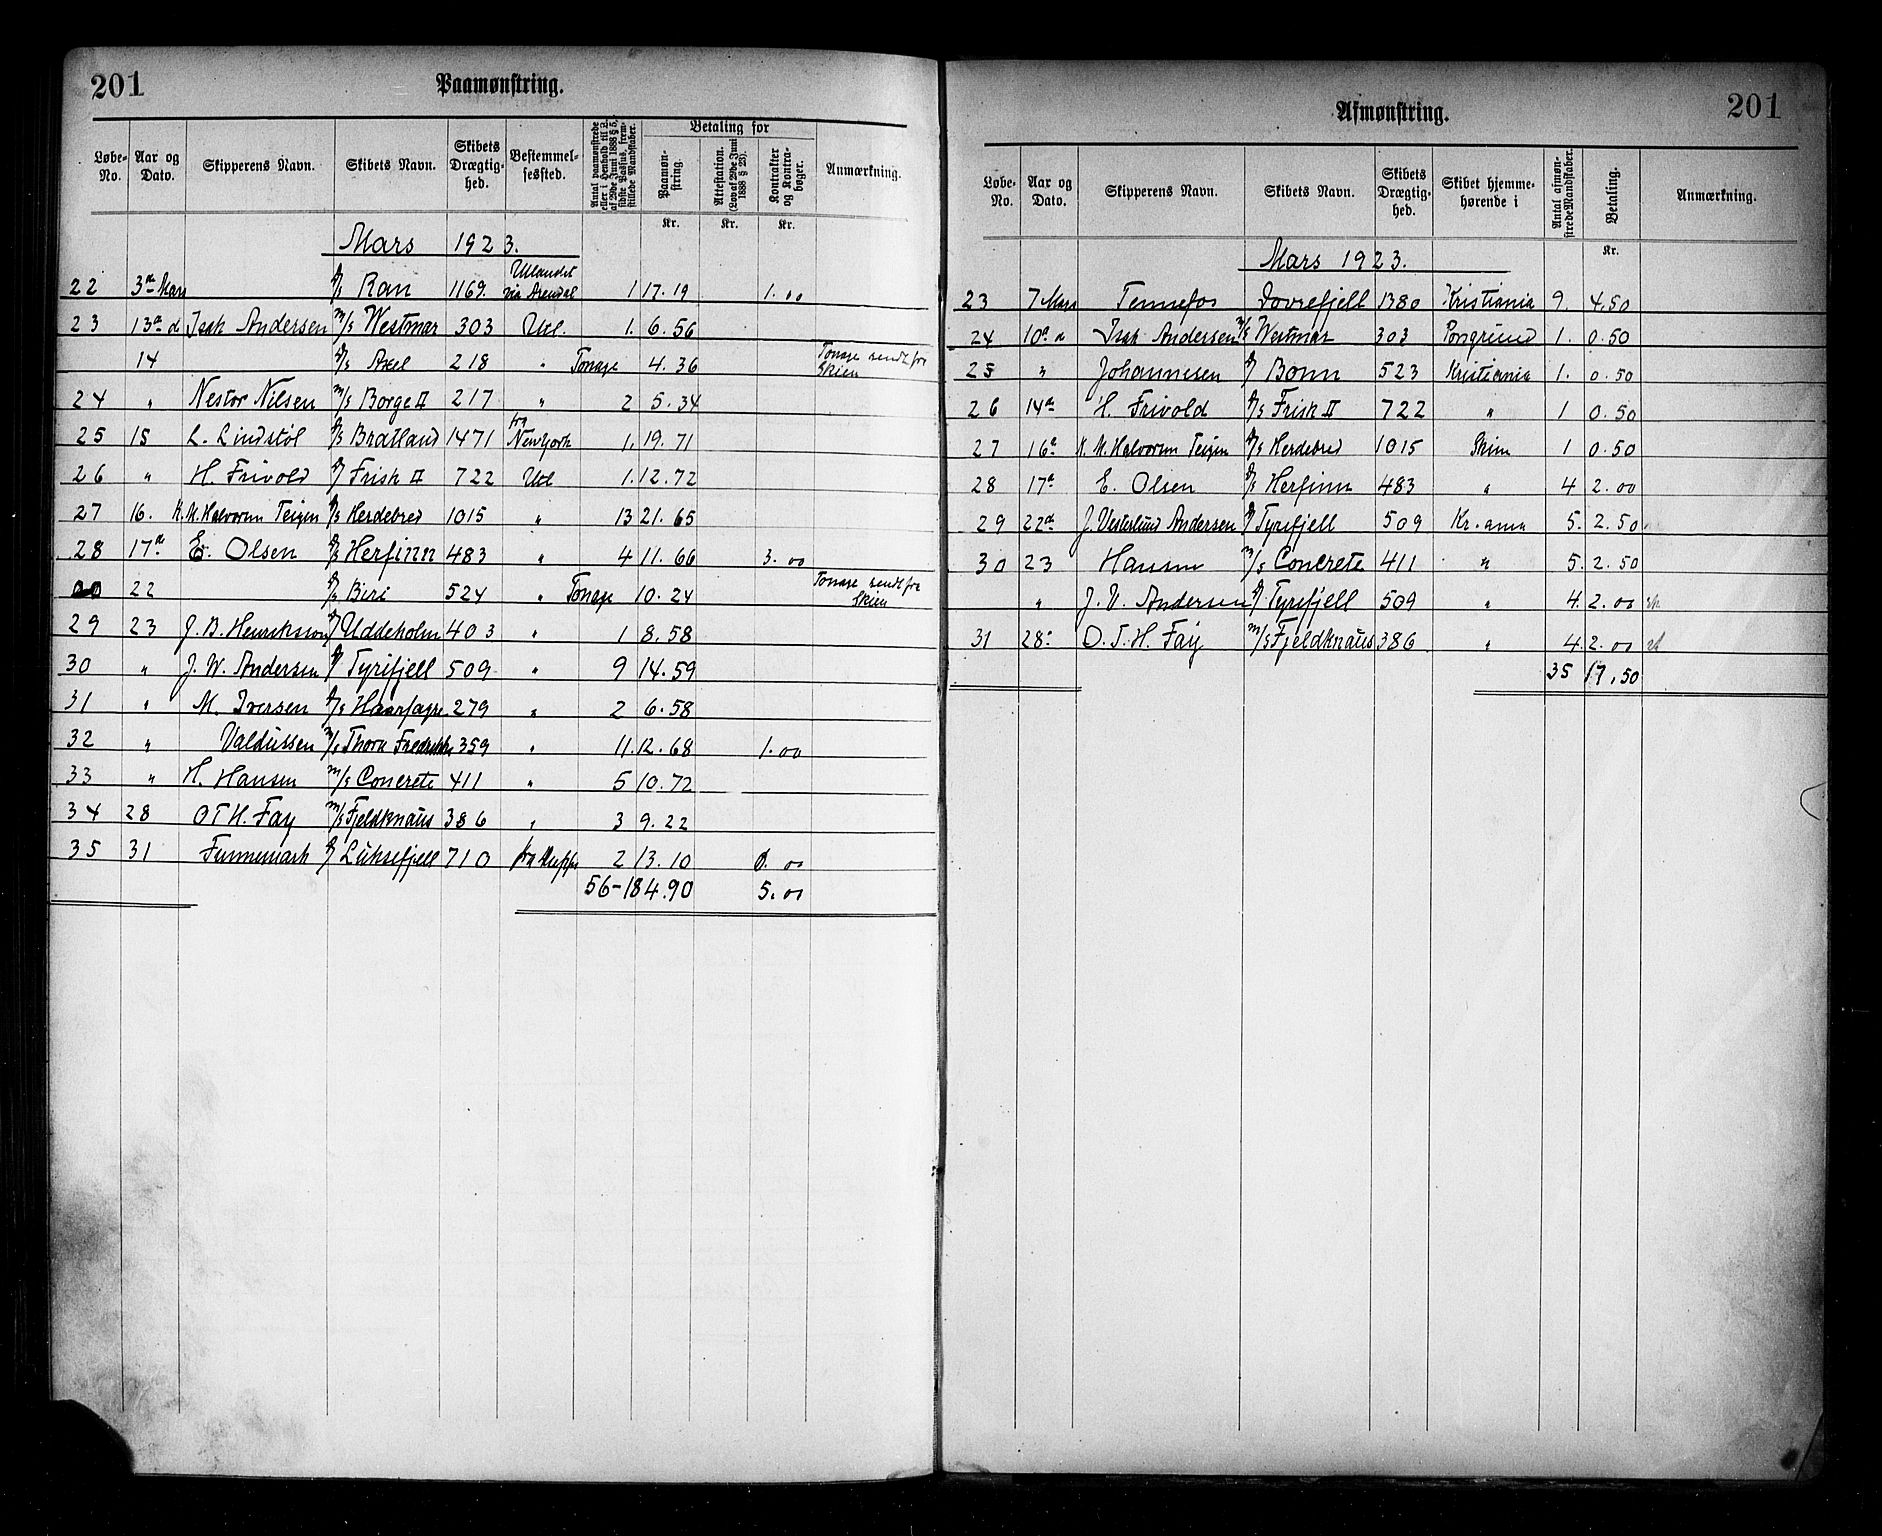 201
Paamønstring.
Løbe-No. Aar og Dato. Skipperens Navn. Skibets Navn. Skibets Drægtighed. Bestemmelsessted. Antal paamønstrede eller i Henhold til 2. af 29de Juni 1888 § 5, sidste Passus, fremstillede Mandskaber. Betaling for Paamønstring. Attestation. (Lov af 29de Juni 1888 § 23). Kontrakter og Kontrabøger. Anmærkning.
Kr. Kr. Kr.
Mars 1923.
22 3die Mars Ran 1169. Utlandet via Arendal 1 17.19 1.00
23 13de d Isak Andersen m/s Westmar 303 Utl. 1. 6.56
14 Axel 218 " Tonage 4.36 Tonage sendt fra Skien
24 " Nestor Nilsen m/s Borge II 217 " 2 5.34
25 15 L. Lindstöl Bratland 1471 fra Newyork 1. 19.71
26 " H. Frivold Frisk II 722 Utl 1. 12.72
27 16. K. M. Halvorsen Teigen Herdebred 1015 " 13 21.65
28 17de E. Olsen Herfinn 483 " 4 11.66 3.00
22 Biri 524 " Tonage 10.24 Tonage sendt fra Skien
29 23 J. B. Henrikson Uddeholm 403 " 1 8.58
30 " J. W. Andersen Tyrifjell 509 " 9 14.59
31 " M. Iversen Haarfagre 279 " 2 6.58
32 " Valdussen m/s Thora Fredrikke 359 " 11. 12.68 1.00
33 " H. Hansen m/s Concrete 411 " 5 10.72
34 28 O T H. Fay m/s Fjeldknaus 386 " 3 9.22
35 31 Funnemark Luksefjell 710 2 13.10 0.00
56-184.90 5.00
201
Afmønstring.
Løbe-No. Aar og Dato. Skipperens Navn. Skibets Navn. Skibets Drægtighed. Skibet hjemmehørende i Antal afmønstrede Mandskaber. Betaling. Anmærkning.
Kr.
Mars 1923.
23 7 Mars Tennefos Dovrefjell 1380 Kristiania 9. 4.50
24 10de d Isak Andersen m/s Westmar 303 Porsgrund 1. 0.50
25 " Johannesen Bonn 523 Kristiania 1. 0.50
26 14de H. Frivold Frisk II 722 " 1 0.50
27 16de K. M. Halvorsen Teigen Herdebred 1015 Skien 1 0.50
28 17de E. Olsen Herfinn 483 " 4 2.00
29 22de J. Vesterlund Andersen Tyrifjell 509 Kr.ania 5. 2.50
30 23 Hansen m/s Concrete 411 " 5. 2.50
" J. V. Andersen Tyrifjell 509 " 4. 2.00
31 28. O. T. H. Fay m/s Fjeldknaus 386 " 4. 2.00
35 17.50